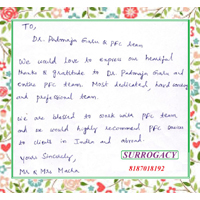 To,
Dr. Padmaja Garu & PFC team
We would love to express our heartful
thanks & gratitude to Dr Padmaja Garu and
entire PFC team. Most dedicated, hard working
and professional team.
We are blessed to work with PFC team
and we would highly recommend PFC services
to clients in India and abroad.
yours Sincerely,
Mr & Mrs Macha
SURROGACY
8187018192